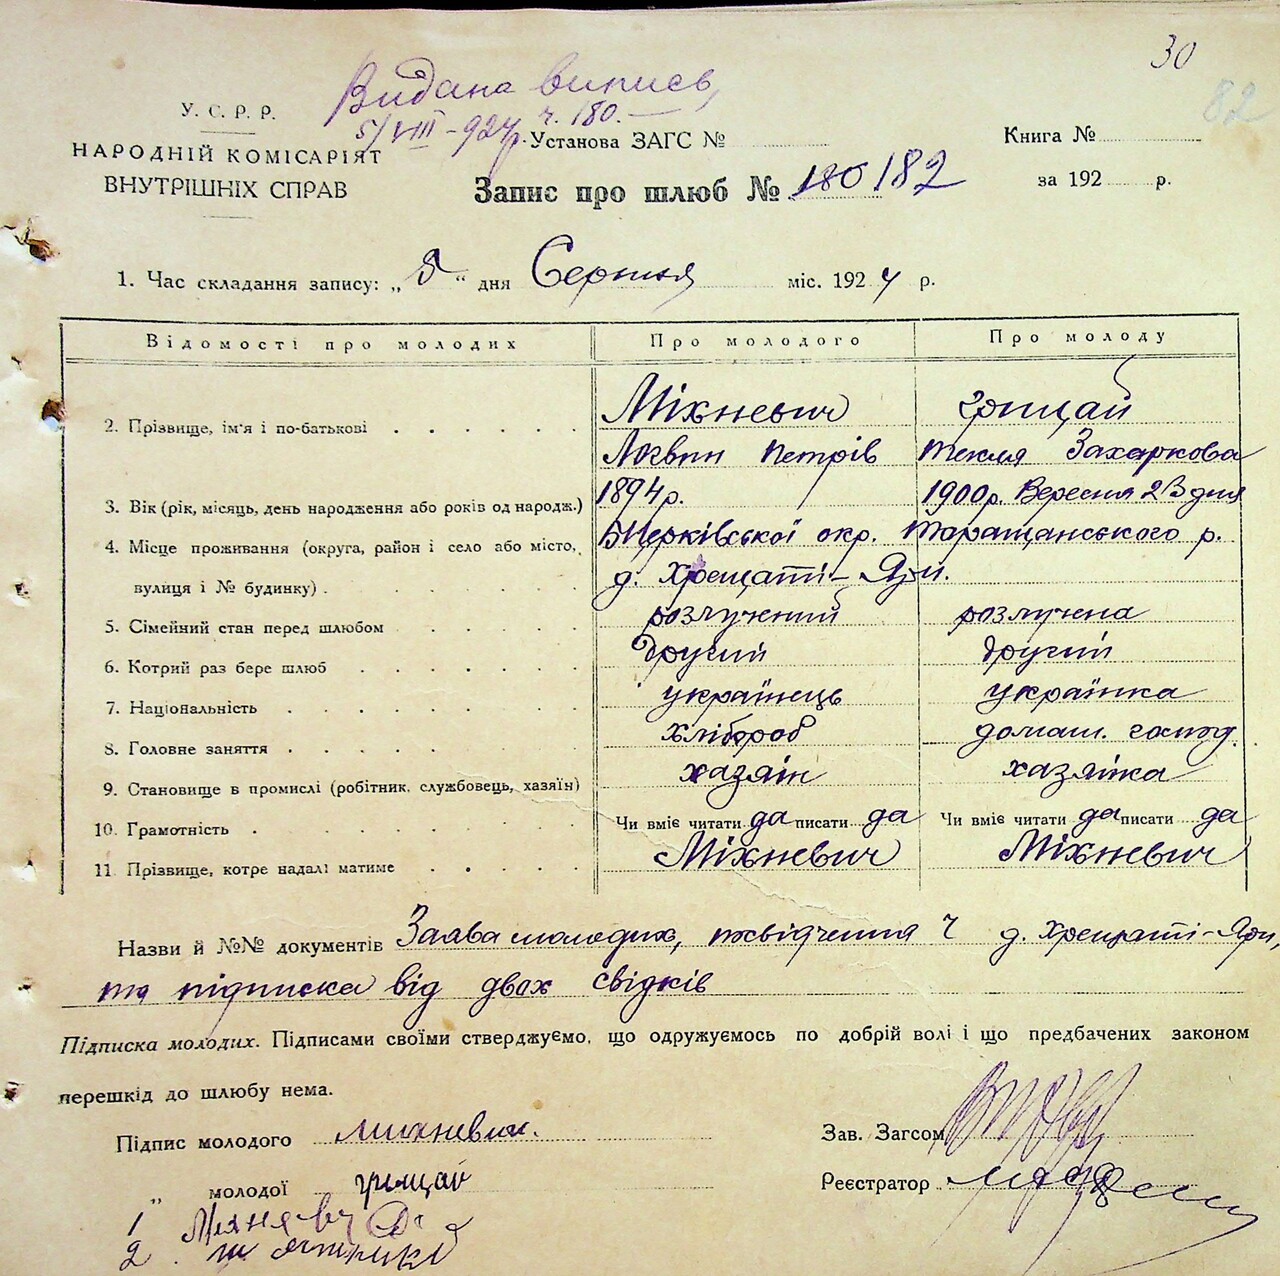 30
82
Видана випись,
5/VIII-924р. ч. 180.
У. С. Р. Р.
НАРОДНІЙ КОМІСАРІЯТ
ВНУТРІШНІХ СПРАВ
Установа ЗАГС №
Книга №
Запис про шлюб № 180 182
за 192 р.
1. Час складання запису: „5“ дня Серпня міс. 1924 р.
Відомості про молодих Про молодого Про молоду
2. Прізвище, ім'я і по-батькові Міхневич Грицай
Петрів Текля Захаркова
3. Вік (рік, місяць, день народження або років од народж.) 1894р. 1900р. Вересня 23 дня
4. Місце проживання (округа, район і село або місто, БЦерківської окр. Таращанського р.
вулиця і № будинку) д. Хрещаті-Яри.
5. Сімейний стан перед шлюбом розлучений розлучена
6. Котрий раз бере шлюб другий другий
7. Національність українець українка
8. Головне заняття хлібороб домаш. госпд.
9. Становище в промислі (робітник, службовець, хазяїн) хазяін хазяйка
10. Грамотність Чи вміє читати да писати да Чи вміє читати да писати да
11 Прізвище, котре надалі матиме Міхневич Міхневич
Назви й №№ документів Заява молодих, посвідчення ч д. Хрещаті-Яри,
та підписка від двох свідків
Підписка молодих. Підписами своїми стверджуємо, що одружуємось по добрій волі і що предбачених законом
перешкід до шлюбу нема.
Підпис молодого Михневич. Зав. Загсом
„ молодої Грыцай Реєстратор
1
2